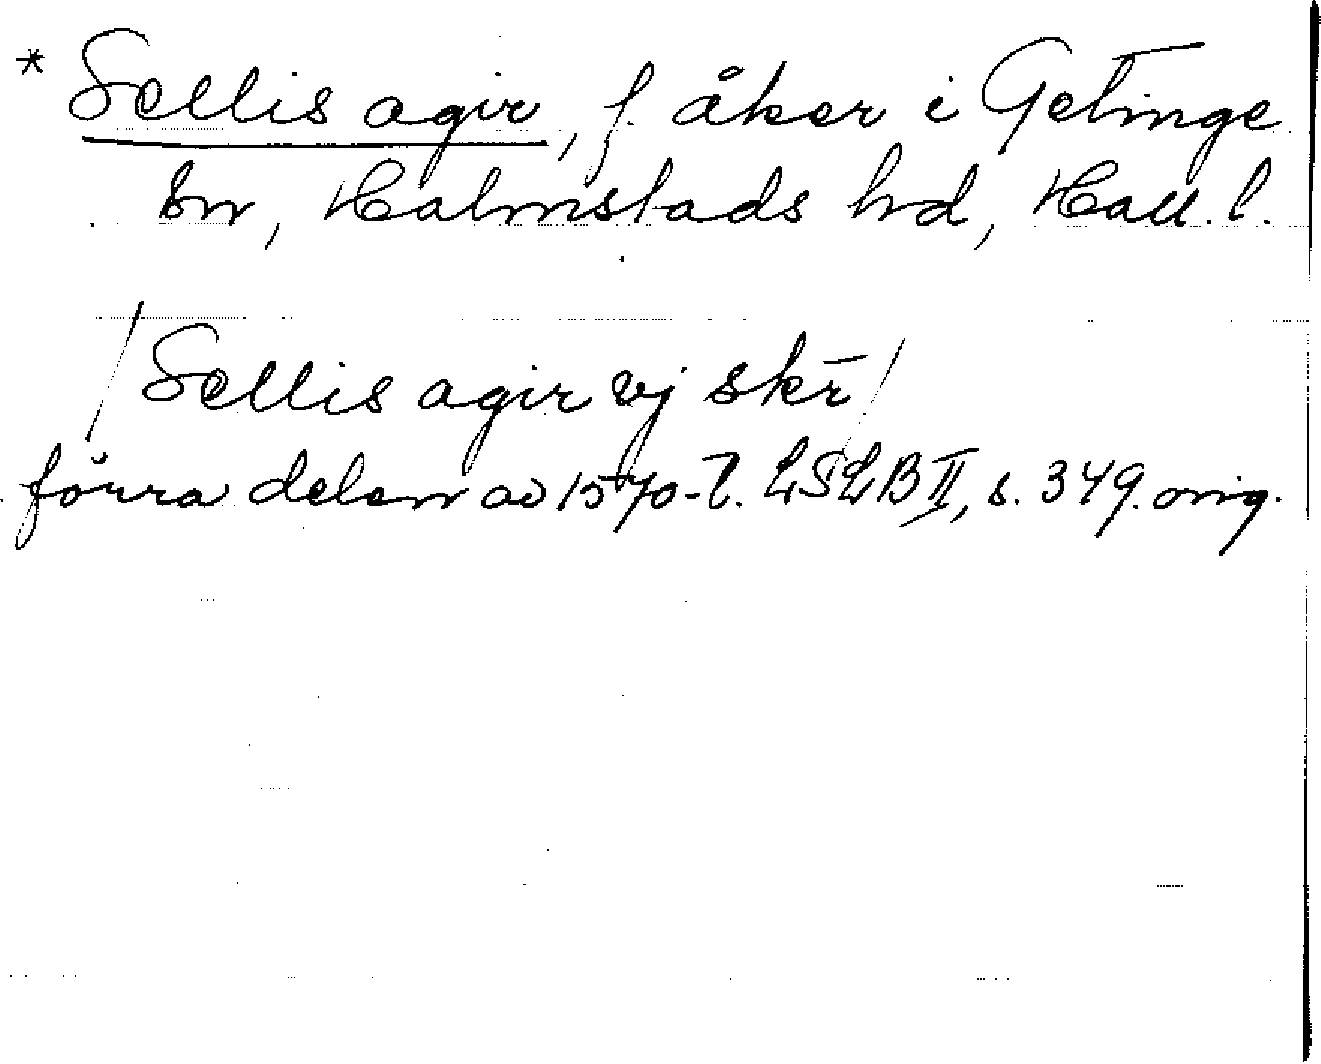 * Sellis agir, f. åker i Getinge
sn, Halmstads hd, Hall. l.
/Sellis agir vj skr̄/
förra delen av 1570-t. LSLB II, s. 349. orig.